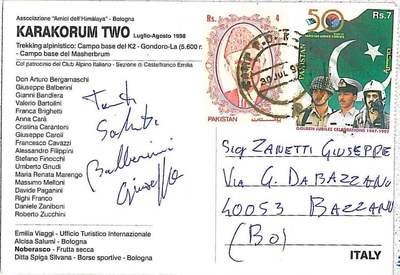 Associazione "Amici dell'Himàlaya" - Bologna
KARAKORUM TWO Luglio-Agosto 1998
Trekking alpinistico: Campo base del K2 - Gondoro-La (5.600 m
- Campo base del Masherbrum
Col patrocinio del Club Alpino Italiano - Sezione di Castelfranco Emilia
Don Arturo Bergamaschi
Giuseppe Balberini
Gianni Bandiera
Valerio Bartolini
Franca Brighetti
Anna Carà
Cristina Carantoni
Giuseppe Caroli
Francesco Cavazzi
Alessandro Filippini
Stefano Finocchi
Umberto Gnudi
Maria Renata Marengo
Massimo Melloni
Davide Paganini
Righi Franco
Daniele Zaniboni
Roberto Zucchini
Tanti
Saluti
Balberini
Giuseppe
Emilia Viaggi - Ufficio Turistico Internazionale
Alcisa Salumi - Bologna
Noberasco - Frutta secca
Ditta Spiga Silvana - Borse sportive - Bologna
4
PAKISTAN
30 JUL 9
50
Rs.7
PAKISTAN
GOLDEN JUBILEE CELEBRATIONS 1947-1997
Sig ZANETTI GIUSEPPE
VIA G. DABAZZANO
40053 BAZZANO
(BO)
ITALY